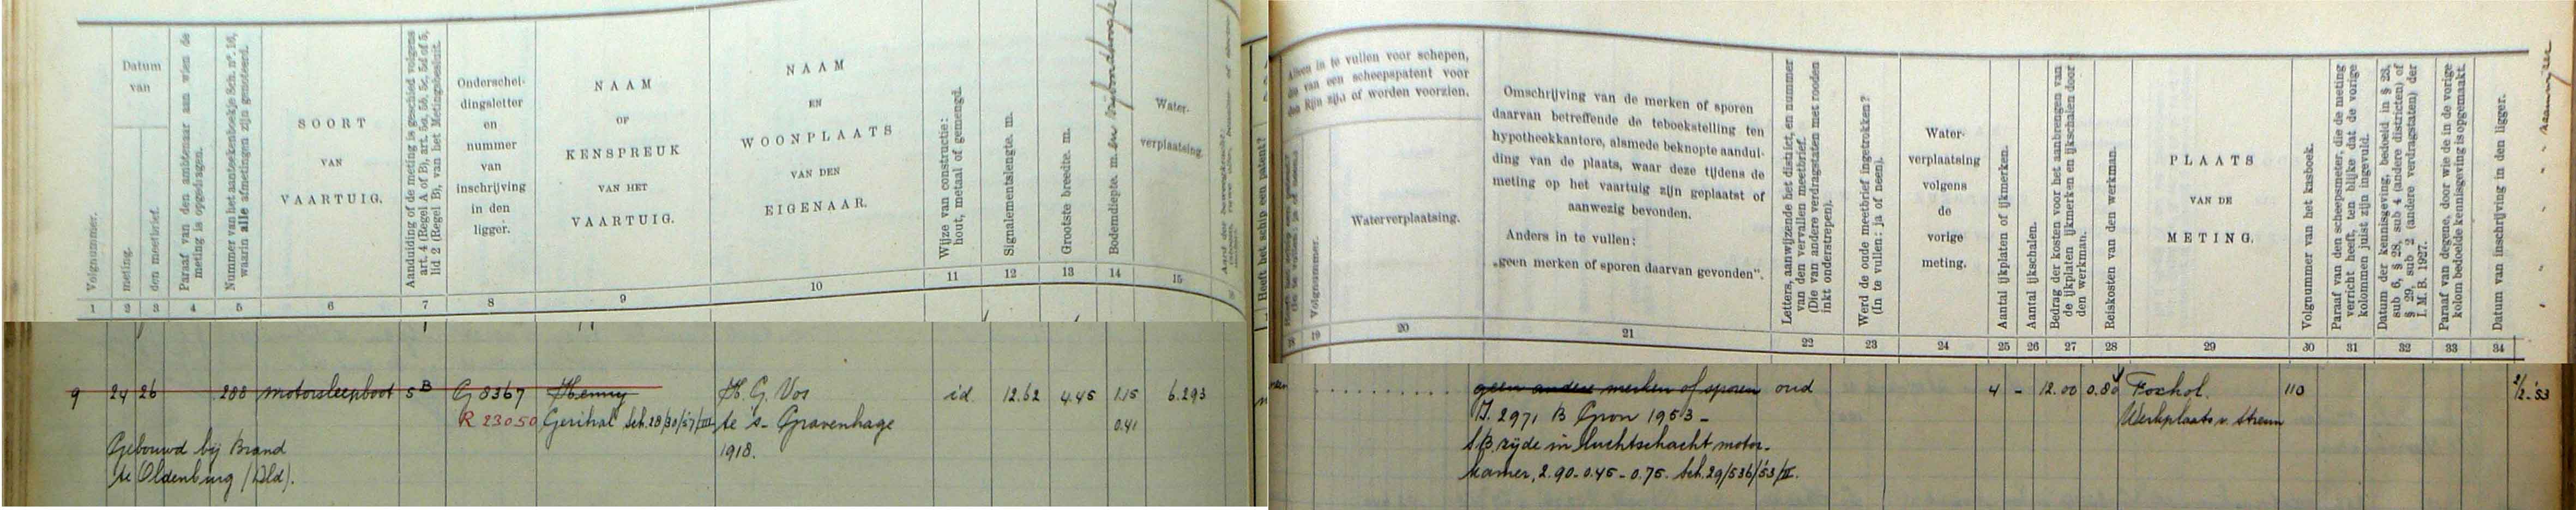 Volgnummer.
Datum
van
meting.
den meetbrief.
Paraaf van den ambtenaar aan wien de
meting is opgedragen.
Nummer van het aanteekenboekje Sch. nº. 16,
waarin alle afmetingen zijn genoteerd.
SOORT
VAN
VAARTUIG.
Aanduiding of de meting is geschied volgens
art. 4 (Regel A of B), art. 5a, 5b, 5c, 5d of 5,
lid 2 (Regel B), van het Metingsbesluit.
Onderschei-
dingsletter
en
nummer
van
inschrijving
in den
ligger.
NAAM
OF
KENSPREUK
VAN HET
VAARTUIG.
NAAM
EN
WOONPLAATS
VAN DEN
EIGENAAR.
Wijze van constructie:
hout, metaal of gemengd.
Signalementslengte. m.
Grootste breedte. m.
Bodemdiepte. m.
Water-
verplaatsing.
Heeft het schip een patent?
1 2 3 4 5 6 7 8 9 10 11 12 13 14 15
9 24 26 288 motorsleepboot 5B G 8367 Henny H. G. Vos id. 12.62 4.45 1.15 6.293
R 23050 Gerihal Sch. 28/30/57/III te s- Gravenhage 0.41
Gebouwd bij Brand 1918.
te Oldenburg (Dld).
Alleen in te vullen voor schepen,
die van een scheepspatent voor
den Rijn zijn of worden voorzien.
Volgnummer.
Waterverplaatsing.
Omschrijving van de merken of sporen
daarvan betreffende de teboekstelling ten
hypotheekkantore, alsmede beknopte aandui-
ding van de plaats, waar deze tijdens de
meting op het vaartuig zijn geplaatst of
aanwezig bevonden.
Anders in te vullen:
„geen merken of sporen daarvan gevonden".
Letters, aanwijzende het district, en nummer
van den vervallen meetbrief.
(Die van andere verdragstaten met rooden
inkt onderstrepen).
Werd de oude meetbrief ingetrokken?
(In te vullen: ja of neen).
Water-
verplaatsing
volgens
de
vorige
meting.
Aantal ijkplaten of ijkmerken.
Aantal ijkschalen.
Bedrag der kosten voor het aanbrengen van
de ijkplaten ijkmerken en ijkschalen door
den werkman.
Reiskosten van den werkman.
PLAATS
VAN DE
METING.
Volgnummer van het kasboek.
Paraaf van den scheepsmeter, die de meting
verricht heeft, ten blijke dat de vorige
kolommen juist zijn ingevuld.
Datum der kennisgeving, bedoeld in § 23,
sub 6, § 28, sub 4 (andere districten) of
§ 29, sub 2 (andere verdragstaten) der
I. M. B. 1927.
Paraaf van degene, door wie de in de vorige
kolom bedoelde kennisgeving is opgemaakt.
Datum van inschrijving in den ligger.
18 19 20 21 22 23 24 25 26 27 28 29 30 31 32 33 34
geen andere merken of sporen oud 4 - 12.00 0.80 Foxhol. 110 2/2-'53
2971 B Gron 1953 - Werkplaats v. Streun
SB zijde in luchtschacht motor-
kamer, 2.90-0.45-0.75. Sch. 29/536/'53/II.